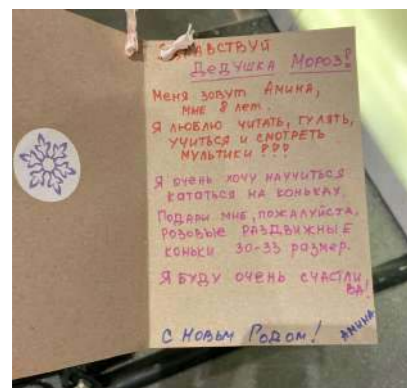 ЗДРАВСТВУЙ
ДЕДУШКА МОРОЗ!
Меня зовут Амина,
мне 8 лет.
Я люблю читать, гулять,
учиться и смотреть
мультики!!!
Я очень хочу научиться
кататься на коньках.
Подари мне, пожалуйста,
розовые раздвижные
коньки 30-33 размер.
Я буду очень счастли
ва!
С Новым Годом!
АМИНА